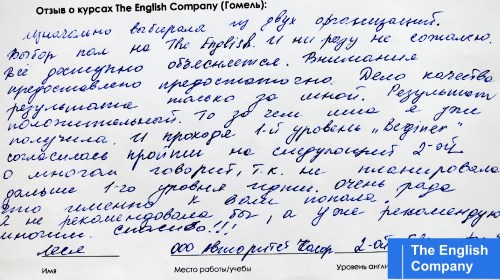 Отзыв о курсах The English Company (Гомель):
Изначально выбирала из двух организаций.
Выбор пал на The English. И ни разу не сожалею.
Всё доступно объясняется. Внимания
предоставлено предостаточно. Дело качество
результата только за мной. Результат
положительный. То за чем шла я уже
получила. И проходя 1-й уровень „Beginer"
согласилась пройти на следующий 2-ой
о многом говорит, т.к. не планировала
дальше 1-го уровня идти. Очень рада
что именно к Вам попала.
Я не рекомендовала бы, а уже рекомендую
многим. Спасибо!!!
Леся ООО 2-ой
Имя Место работы/учебы Уровень англи
The English
Company